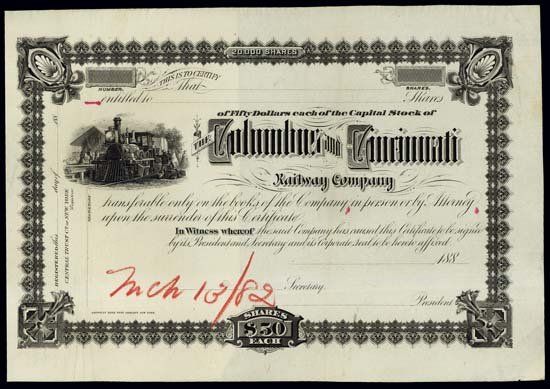 20,000 SHARES
NUMBER.
THIS IS TO CERTIFY
That
SHARES.
Entitled to
Shares
of Fifty Dollars each of the Capital Stock of
THE Columbus and Cincinnati
Railway Company
transferable only on the books of the Company in person or by Attorney
upon the surrender of this Certificate.
In Witness whereof the said Company has caused this Certificate to be signed
by its President and Secretary and its Corporate seal to be hereto affixed
188
Mch 13/82
Secretary.
President
SHARES
$50
EACH
REGISTERED this day of 188
CENTRAL TRUST CO. OF NEW YORK